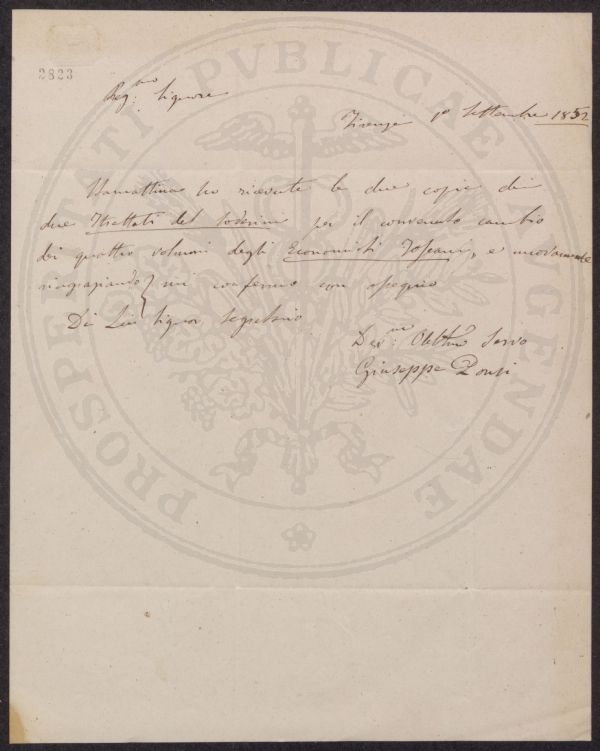 2823
Preg.mo Signore
Firenze 1o Settembre 1852
Stamattina ho ricevute le due copie di
due Trattati del Soderini per il convenuto cambio
dei quattro volumi degli Economisti Toscani, e nuovamente
ringraziando mi confermo con ossequio
Di Lei Signor Segretario
Dev.mo Obbmo Servo
Giuseppe Ponsi
PROSPERITATI PVBLICAE AVGENDAE